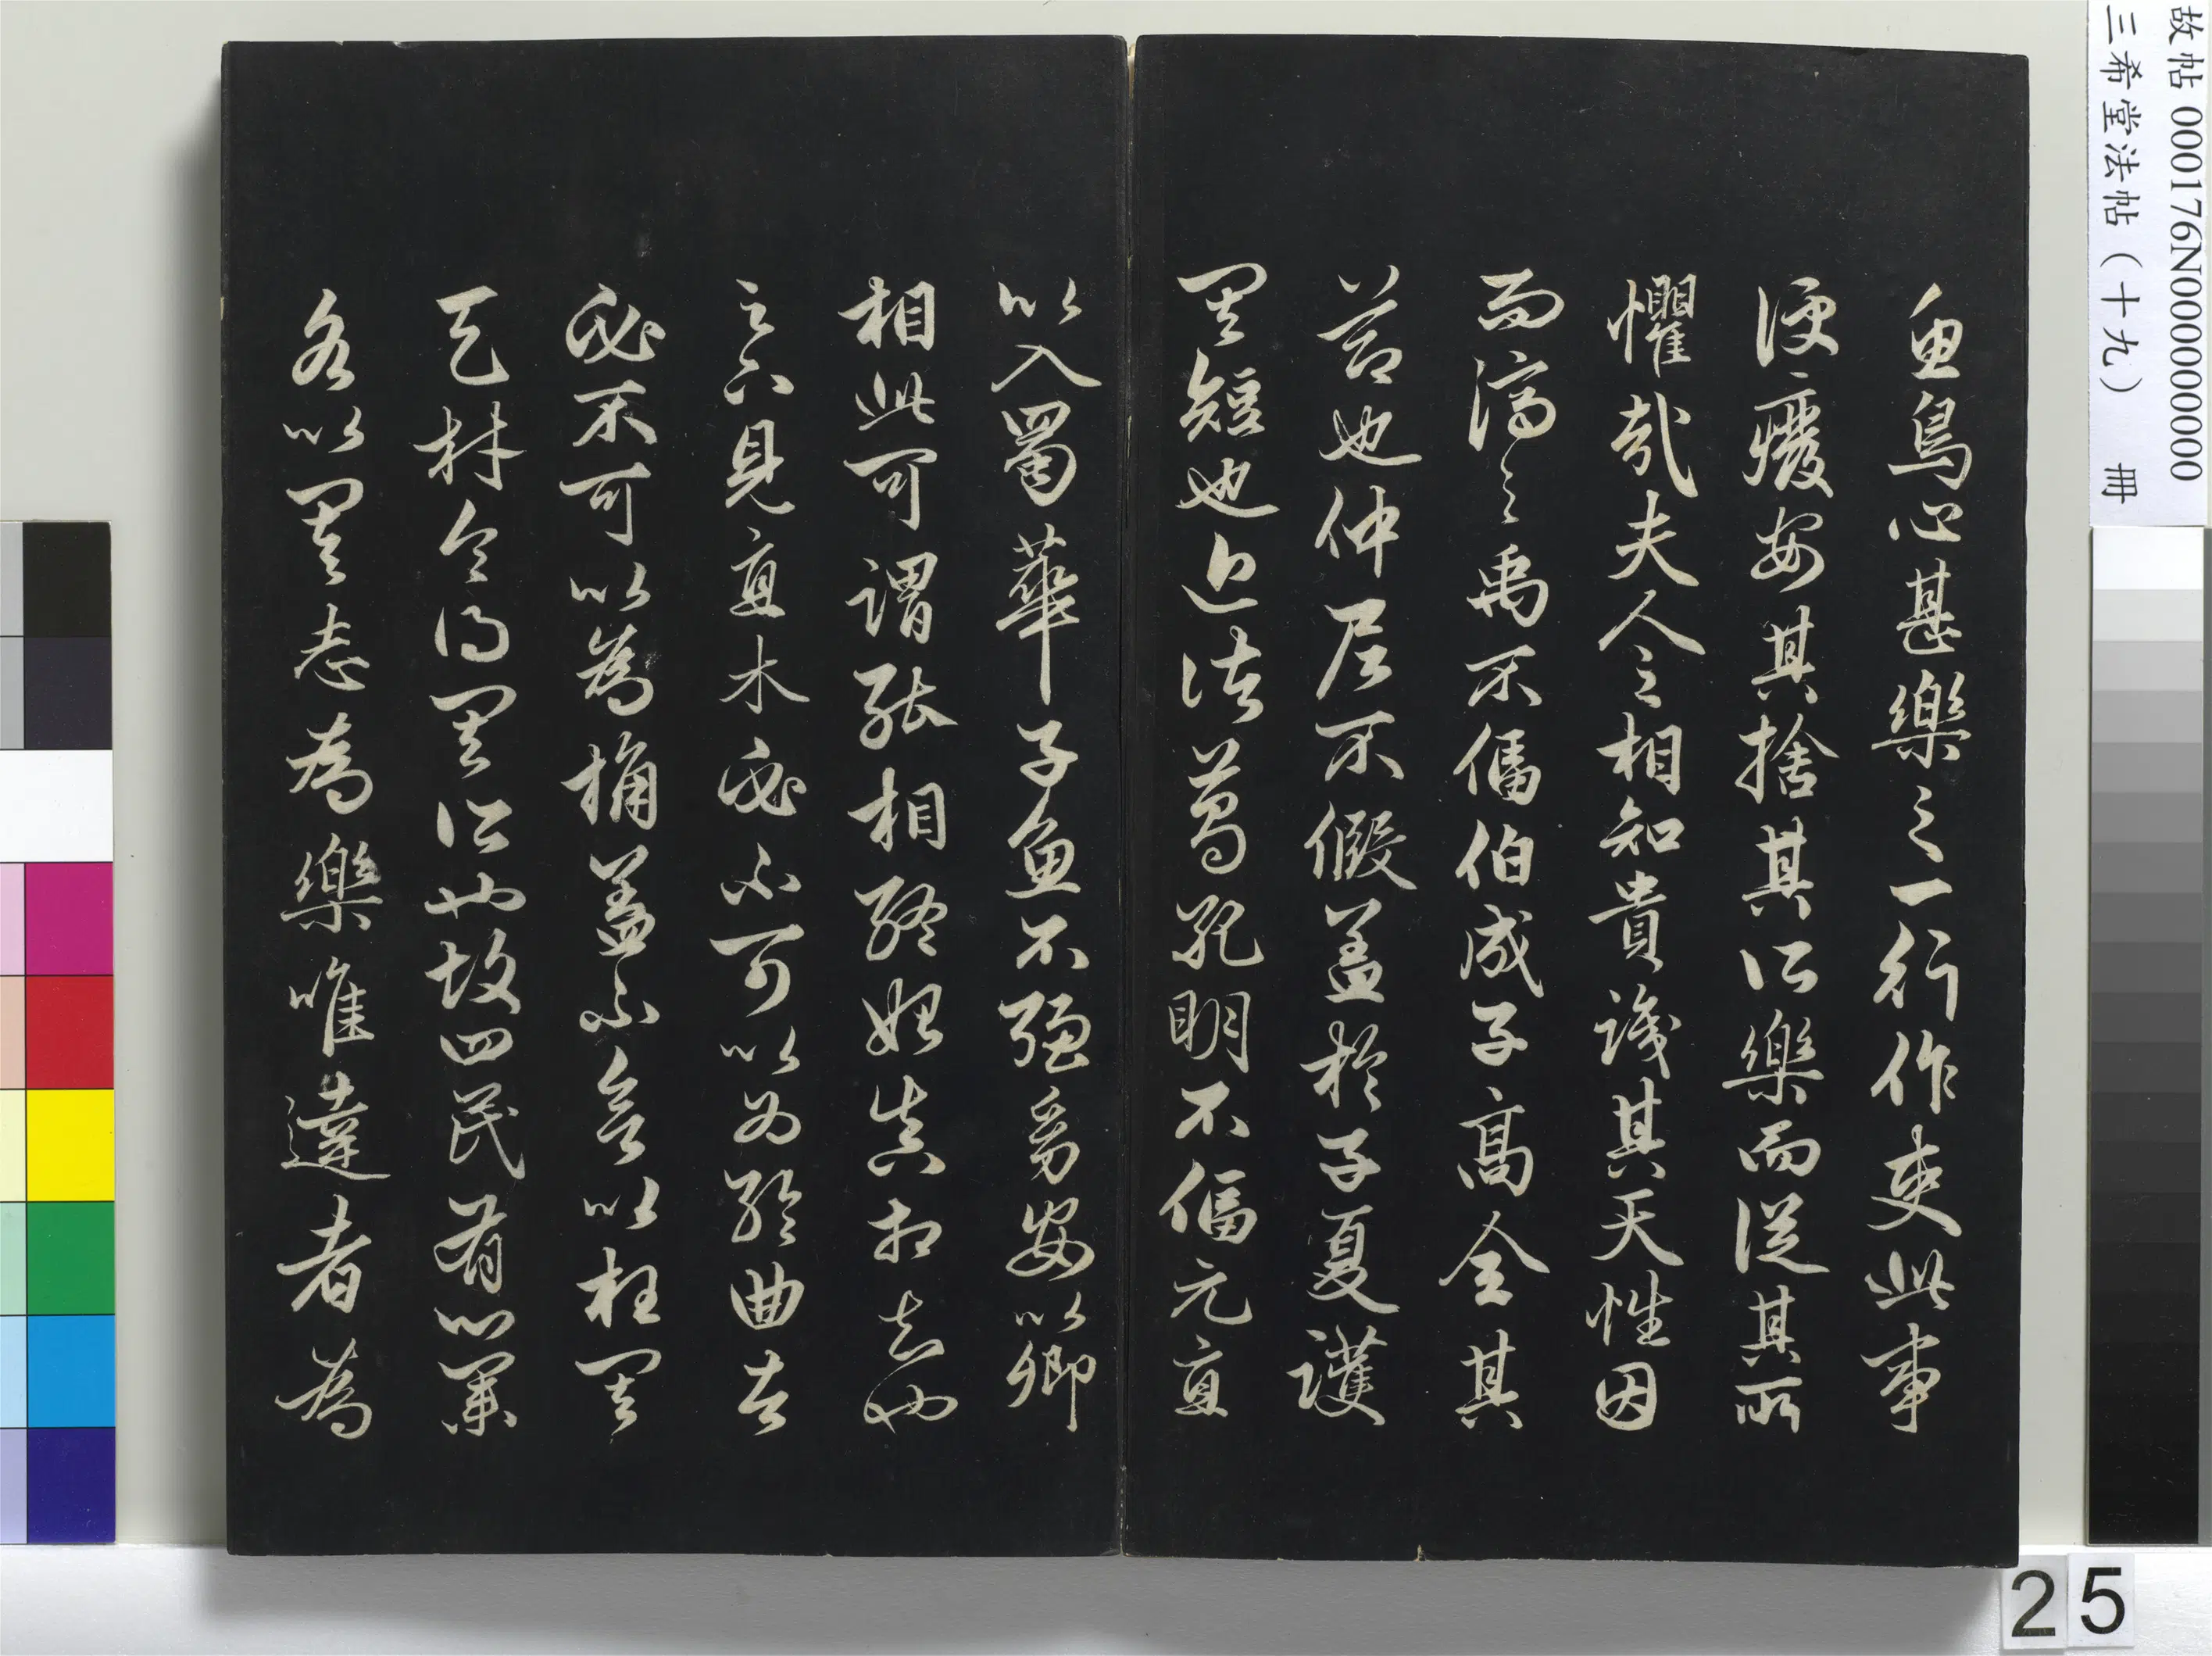 魚鳥心甚樂之一行作吏此事
便廢安其捨其所樂而從其所
懼哉夫人之相知貴識其天性因
而濟之禹不偪伯成子高全其
節也仲尼不假蓋於子夏護
其短也近諸葛孔明不偪元直
以入蜀華子魚不強幼安以卿
相此可謂能相終始真相知也
足下見直木必不可以為輪曲者
必不可以為桷蓋不欲以枉其
天材令得其所也故四民有業
各以其志為樂唯達者為
故帖 000176N000000000
三希堂法帖（十九） 冊
25